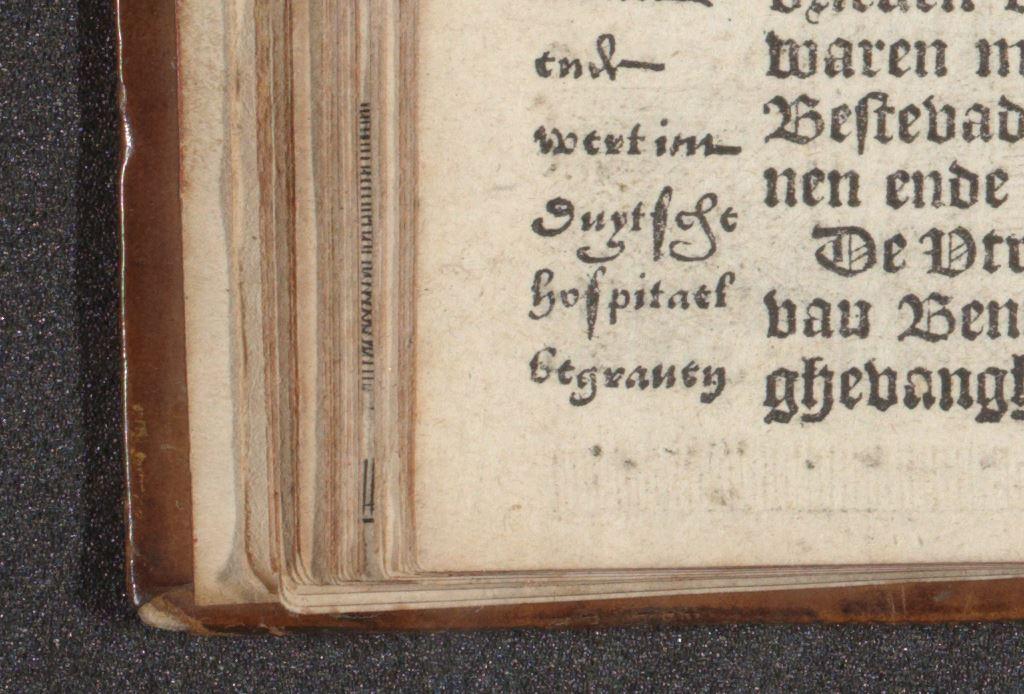 ende
wert inn
duytsche
hospitael
begrauen
waren
Bestevad
nen ende
De Vtr
vau Ben
ghevangh